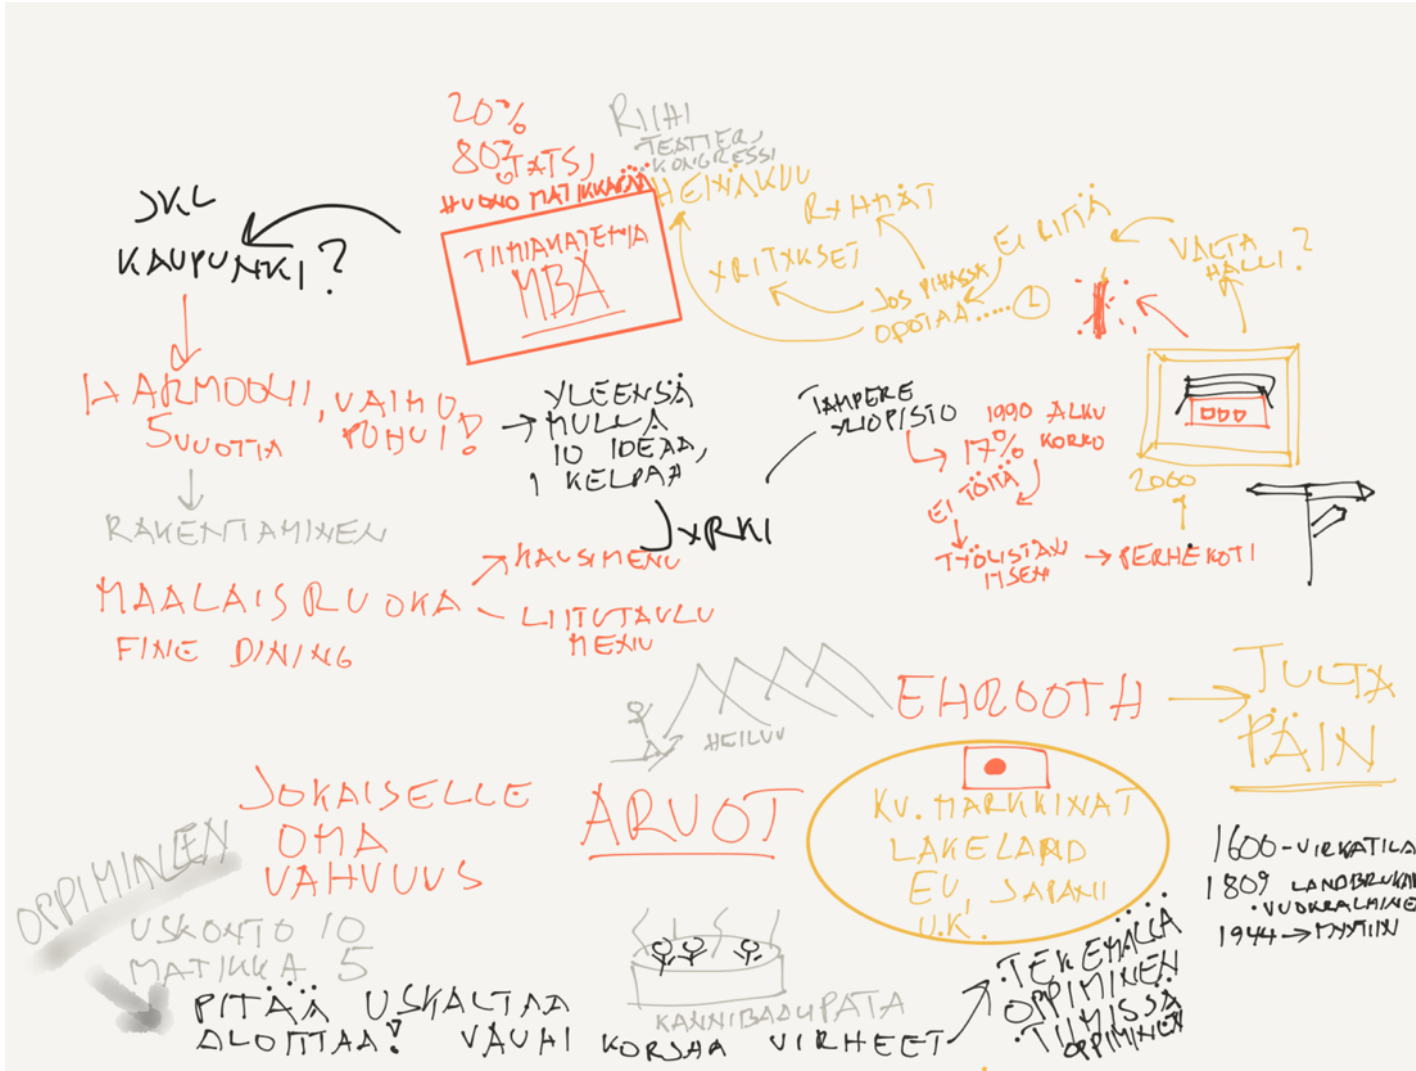 20%
80%
HUONO MATIKKAPÄÄ
RIIHI
TEATTERI
KONGRESSI
HEINÄKUU
TIIMIAKATEMIA
MBA
JKL
KAUPUNKI?
RYHMÄT
YRITYKSET
EI RIITÄ
JOS PIHASSA
OPOTAA.....
VALTA
HALLI?
HARMOONI,
5 VUOTTA
VAIMO
PUHUI!
YLEENSÄ
MULLA
10 IDEAA,
1 KELPAA
JYRKI
TAMPERE
YLIOPISTO
1990 ALKU
17% KORKO
EI TÖITÄ
TYÖLISTÄN
ITSENI
PERHEKOTI
2000
RAKENTAMINEN
MAALAISRUOKA
FINE DINING
KAUSIMENU
LIITUTAULU
MENU
HEILUU
EHROOTH
TULTA
PÄIN
JOKAISELLE
OMA
VAHVUUS
ARVOT
KV. MARKKINAT
LAKELAND
EU, JAPANI
U.K.
1600-VIRKATILA
1809
VUOKRALAINE
1944 → MYYTIIN
OPPIMINEN
USKONTO 10
MATIKKA 5
PITÄÄ USKALTAA
ALOITTAA! VAUHI KORJAA VIRHEET
KANNIBAALIPATA
·TEKEMÄLLÄ
OPPIMINEN
·TIIMISSÄ
OPPIMINEN